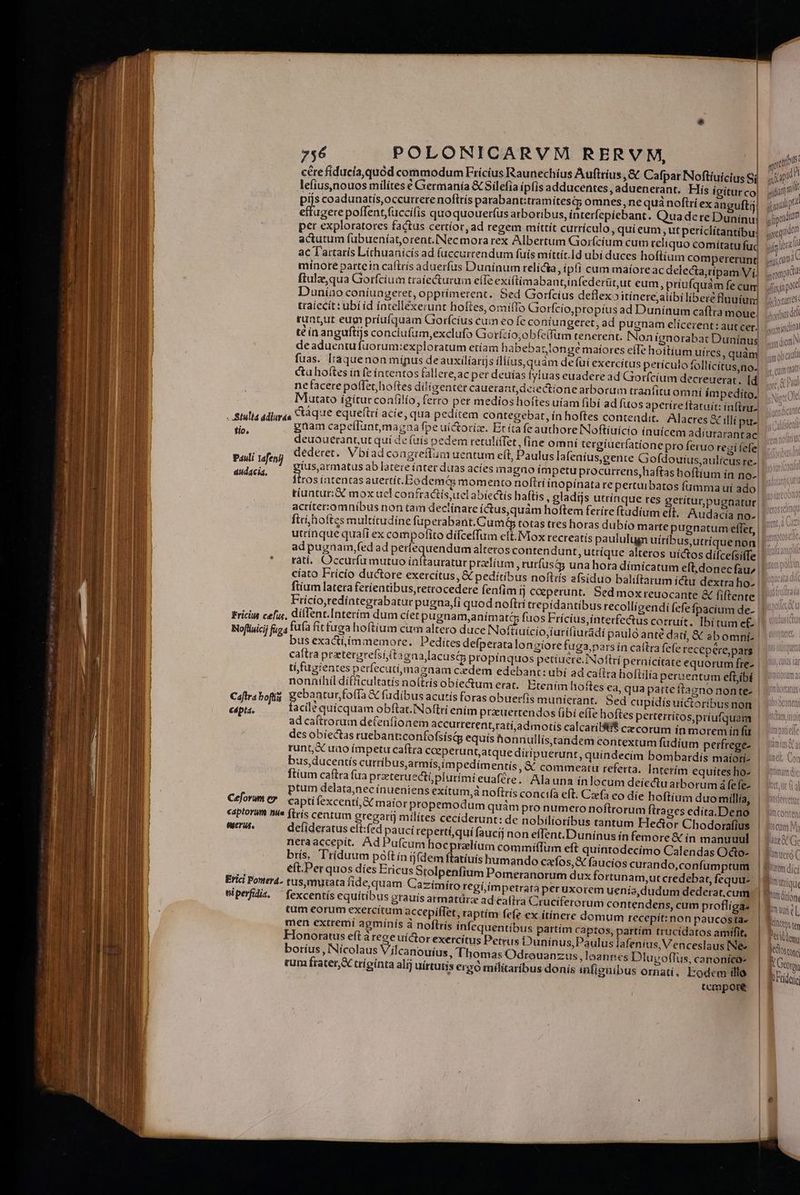 756 POLONICARVM RERVM,
cere fiducia, quòd commodum Fricius Raunechius Austrius, & Caspar Nostiuicius Si
lesius, nouos milites è Germania & Silesia ipsis adducentes, aduenerant. His igitur co
pijs coadunatis, occurrere nostris parabant: tramitesq; omnes, ne quà nostri ex angustijs
effugere possent, succisis quoquouersus arboribus, intersepiebant. Qua de re Duninus
per exploratores factus certior, ad regem mittit curriculo, qui eum, ut periclitantibus
actutum subueniat, orent. Nec mora rex Albertum Gorscium cum reliquo comitatu suo
ac Tartaris Lithuanicis ad succurrendum suis mittit. Id ubi duces hostium compererunt
minore parte in castris aduersus Duninum relicta, ipsi cum maiore ac delecta, ripam Vi
stulæ, qua Gorscium traiecturum esse existimabant, insederūt, ut eum, priusquàm se cum
Dunino coniungeret, opprimerent. Sed Gorscius deflexo itinere, alibi liberè fluuium
traiecit: ubi id intellexerunt hostes, omisso Gorscio, propius ad Duninum castra moue
runt, ut eum priusquam Gorscius cum eo se coniungeret, ad pugnam elicerent: aut cer
tè in angustijs conclusum, excluso Gorscio, obsessum tenerent. Non ignorabat Duninus
de aduentu suorum: exploratum etiam habebat, longè maiores esse hostium uires, quàm
suas. Itaque non minus de auxiliarijs illius, quàm de sui exercitus periculo sollicitus, no
ctu hostes in se intentos fallere, ac per deuias syluas euadere ad Gorscium decreuerat. Id
ne facere posset, hostes diligenter cauerant, deiectione arborum transitu omni impedito.
Mutato igitur consilio, ferro per medios hostes uiam sibi ad suos aperire statuit: instru
Stulta adiura ctaque equestri acie, qua peditem contegebat, in hostes contendit. Alacres & illi pu
tio. gnam capessunt, magna spe uictoriæ. Et ita se authore Nostiuicio inuicem adiurarant ac
deuouerant, ut qui de suis pedem retulisset, sine omni tergiuersatione pro seruo regi sese
Pauli Iasenij dederet. Vbi ad congressum uentum est, Paulus Iasenius, gente Gosdouius, aulicus re
audacia. gius, armatus ab latere inter duas acies magno impetu procurrens, hastas hostium in no
stros intentas auertit. Eodemq; momento nostri inopinata re perturbatos summa ui ado
riuntur: & mox uel confractis, uel abiectis hastis, gladijs utrinque res geritur, pugnatur
acriter: omnibus non tam declinare ictus, quàm hostem ferire studium est. Audacia no
stri, hostes multitudine superabant. Cumq; totas tres horas dubio marte pugnatum esset,
utrinque quasi ex composito discessum est. Mox recreatis paululum uiribus, utrique non
ad pugnam, sed ad persequendum alteros contendunt, utrique alteros uictos discesisse
rati. Occursu mutuo instauratur prælium, rursusq; una hora dimicatum est, donec sau
ciato Fricio ductore exercitus, & peditibus nostris assiduo balistarum ictu dextra ho
stium latera ferientibus, retrocedere sensim ij cœperunt. Sed mox reuocante & sistente
Fricio, redintegrabatur pugna, si quod nostri trepidantibus recolligendi sese spacium de
Fricius cesus. dissent. Interim dum ciet pugnam, animatq; suos Fricius, interfectus corruit. Ibi tum ef
Nostiuicij fuga fusa fit fuga hostium cum altero duce Nostiuicio, iurisiurādi paulò antè dati, & ab omni
bus exacti, immemore. Pedites desperata longiore fuga, pars in castra sese recepêre, pars
castra prætergressi, stagna, lacusq; propinquos petiuêre. Nostri pernicitate equorum fre
ti, fugientes persecuti, magnam cædem edebant: ubi ad castra hostilia peruentum est, ibi
nonnihil difficultatis nostris obiectum erat. Etenim hostes ea, qua parte stagno non te
Castra hostiū gebantur, fossa & sudibus acutis foras obuersis munierant. Sed cupidis uictoribus non
capta. facilè quicquam obstat. Nostri enim præuertendos sibi esse hostes perterritos, priusquam
ad castrorum defensionem accurrerent, rati, admotis calcaribus cæcorum in morem in su
des obiectas ruebant: confossisq; equis nonnullis, tandem contextum sudium perfrege
runt, & uno impetu castra cœperunt, atque diripuerunt, quindecim bombardis maiori
bus, ducentis curribus, armis, impedimentis, & commeatu referta. Interim equites ho
stium castra sua præteruecti, plurimi euasêre. Ala una in locum deiectu arborum à sese
ptum delata, nec inueniens exitum, à nostris concisa est. Cæsa eo die hostium duo millia,
Cesorum & capti sexcenti, & maior propemodum quàm pro numero nostrorum strages edita. De no
captorum nu stris centum gregarij milites ceciderunt: de nobilioribus tantum Hector Chodorasius
merus. desideratus est: sed pauci reperti, qui saucij non essent. Duninus in femore & in manu uul
nera accepit. Ad Puscum hoc prælium commissum est quintodecimo Calendas Octo
bris. Triduum pòst in ijsdem statiuis humando cæsos, & saucios curando, consumptum
est. Per quos dies Ericus Stolpensium Pomeranorum dux fortunam, ut credebat, sequu
Erici Pomera- tus, mutata fide, quam Cazimiro regi, impetrata per uxorem uenia, dudum dederat, cum
ni perfidia. sexcentis equitibus grauis armaturæ ad castra Cruciferorum contendens, cum profliga
tum eorum exercitum accepisset, raptim sese ex itinere domum recepit: non paucos ta
men extremi agminis à nostris insequentibus partim captos, partim trucidatos amisit.
Honoratus est à rege uictor exercitus Petrus Duninus, Paulus Iasenius, Venceslaus Ne
borius, Nicolaus Vilcanouius, Thomas Odrouanzus, Ioannes Dlugossus, canonico
rum frater, & triginta alij uirtutis ergò militaribus donis insignibus ornati. Eodem illo
tempore